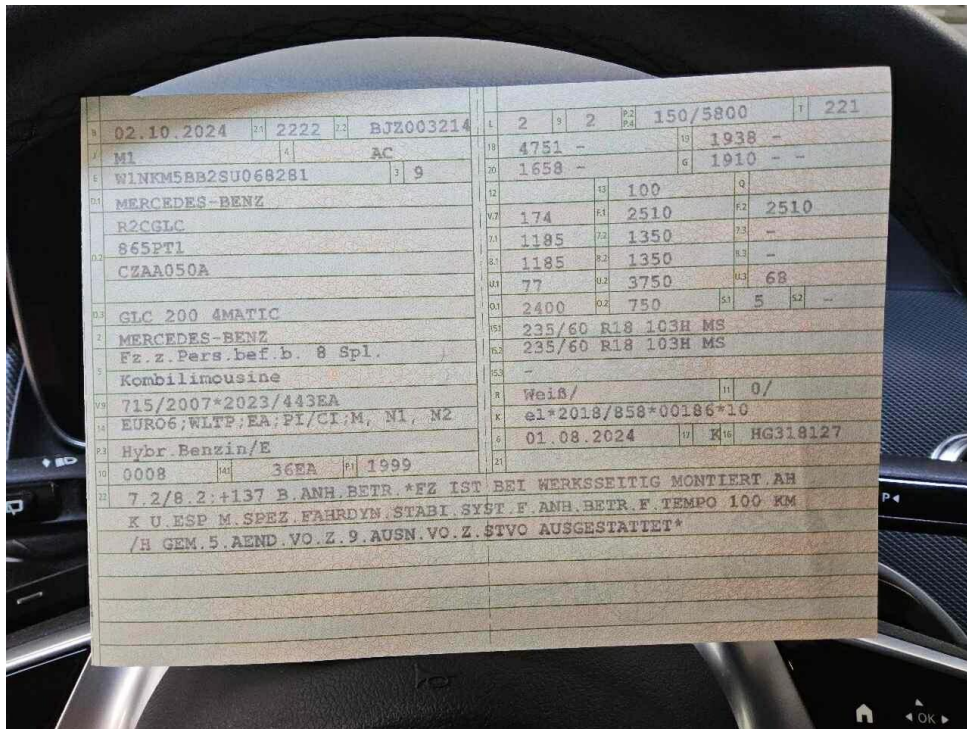 B 02.10.2024 2.1 2222 2.2 BJZ003214
J M1 4 AC
E W1NKM5BB2SU068281 3 9
D.1 MERCEDES-BENZ
R2CGLC
D.2 865PT1
CZAA050A
D.3 GLC 200 4MATIC
2 MERCEDES-BENZ
5 Fz.z.Pers.bef.b. 8 Spl.
Kombilimousine
V.9 715/2007*2023/443EA
14 EURO6;WLTP;EA;PI/CI;M, N1, N2
P.3 Hybr.Benzin/E
10 0008 14.1 36EA P.1 1999
L 2 9 2 P.2 P.4 150/5800 T 221
18 4751 - 19 1938 -
20 1658 - G 1910 - -
12 13 100 Q
V.7 174 F.1 2510 F.2 2510
7.1 1185 7.2 1350 7.3 -
8.1 1185 8.2 1350 8.3 -
U.1 77 U.2 3750 U.3 68
O.1 2400 O.2 750 S.1 5 S.2 -
15.1 235/60 R18 103H MS
15.2 235/60 R18 103H MS
15.3 -
R Weiß/ 11 0/
K e1*2018/858*00186*10
6 01.08.2024 17 K 16 HG318127
21
22 7.2/8.2:+137 B.ANH.BETR.*FZ IST BEI WERKSSEITIG MONTIERT.AH
K U.ESP M.SPEZ.FAHRDYN.STABI.SYST.F.ANH.BETR.F.TEMPO 100 KM
/H GEM.5.AEND.VO.Z.9.AUSN.VO.Z.STVO AUSGESTATTET*
P
OK